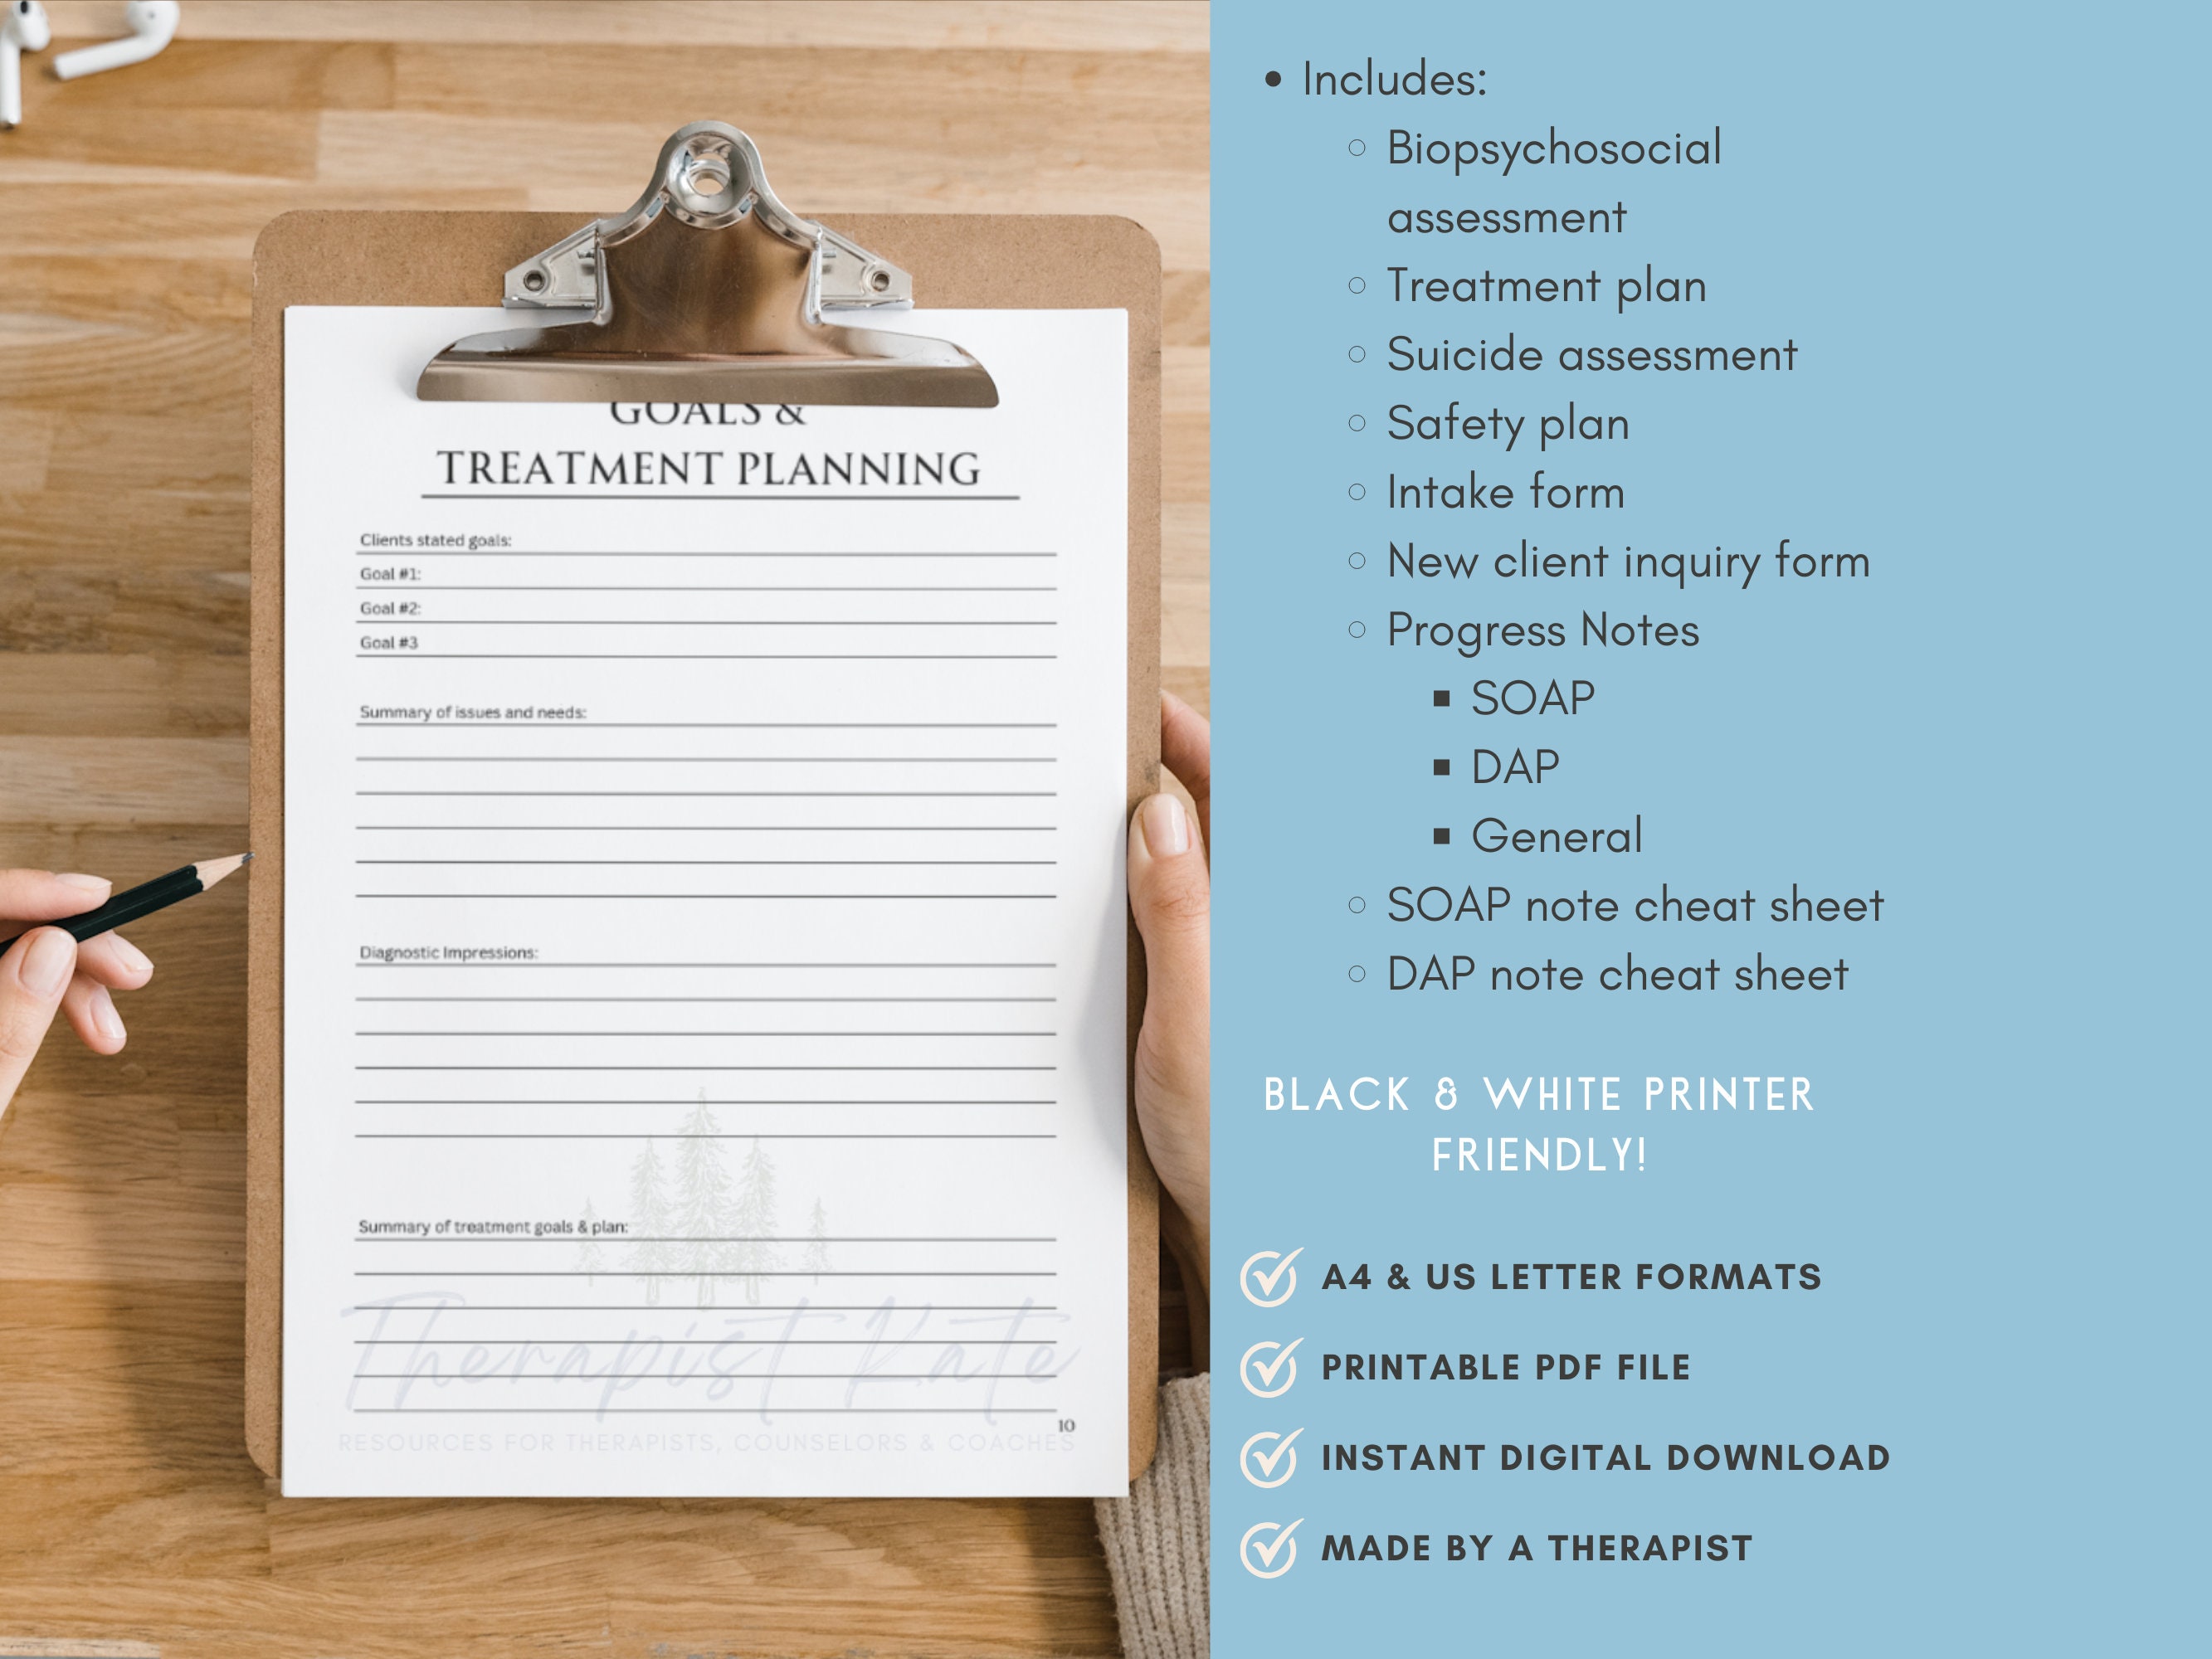 GOALS &
TREATMENT PLANNING
Clients stated goals:
Goal #1:
Goal #2:
Goal #3
Summary of issues and needs:
Diagnostic Impressions:
Summary of treatment goals & plan:
Therapist Kate
10
RESOURCES FOR THERAPISTS, COUNSELORS & COACHES
• Includes:
○ Biopsychosocial
assessment
○ Treatment plan
○ Suicide assessment
○ Safety plan
○ Intake form
○ New client inquiry form
○ Progress Notes
▪ SOAP
▪ DAP
▪ General
○ SOAP note cheat sheet
○ DAP note cheat sheet
BLACK & WHITE PRINTER
FRIENDLY!
A4 & US LETTER FORMATS
PRINTABLE PDF FILE
INSTANT DIGITAL DOWNLOAD
MADE BY A THERAPIST